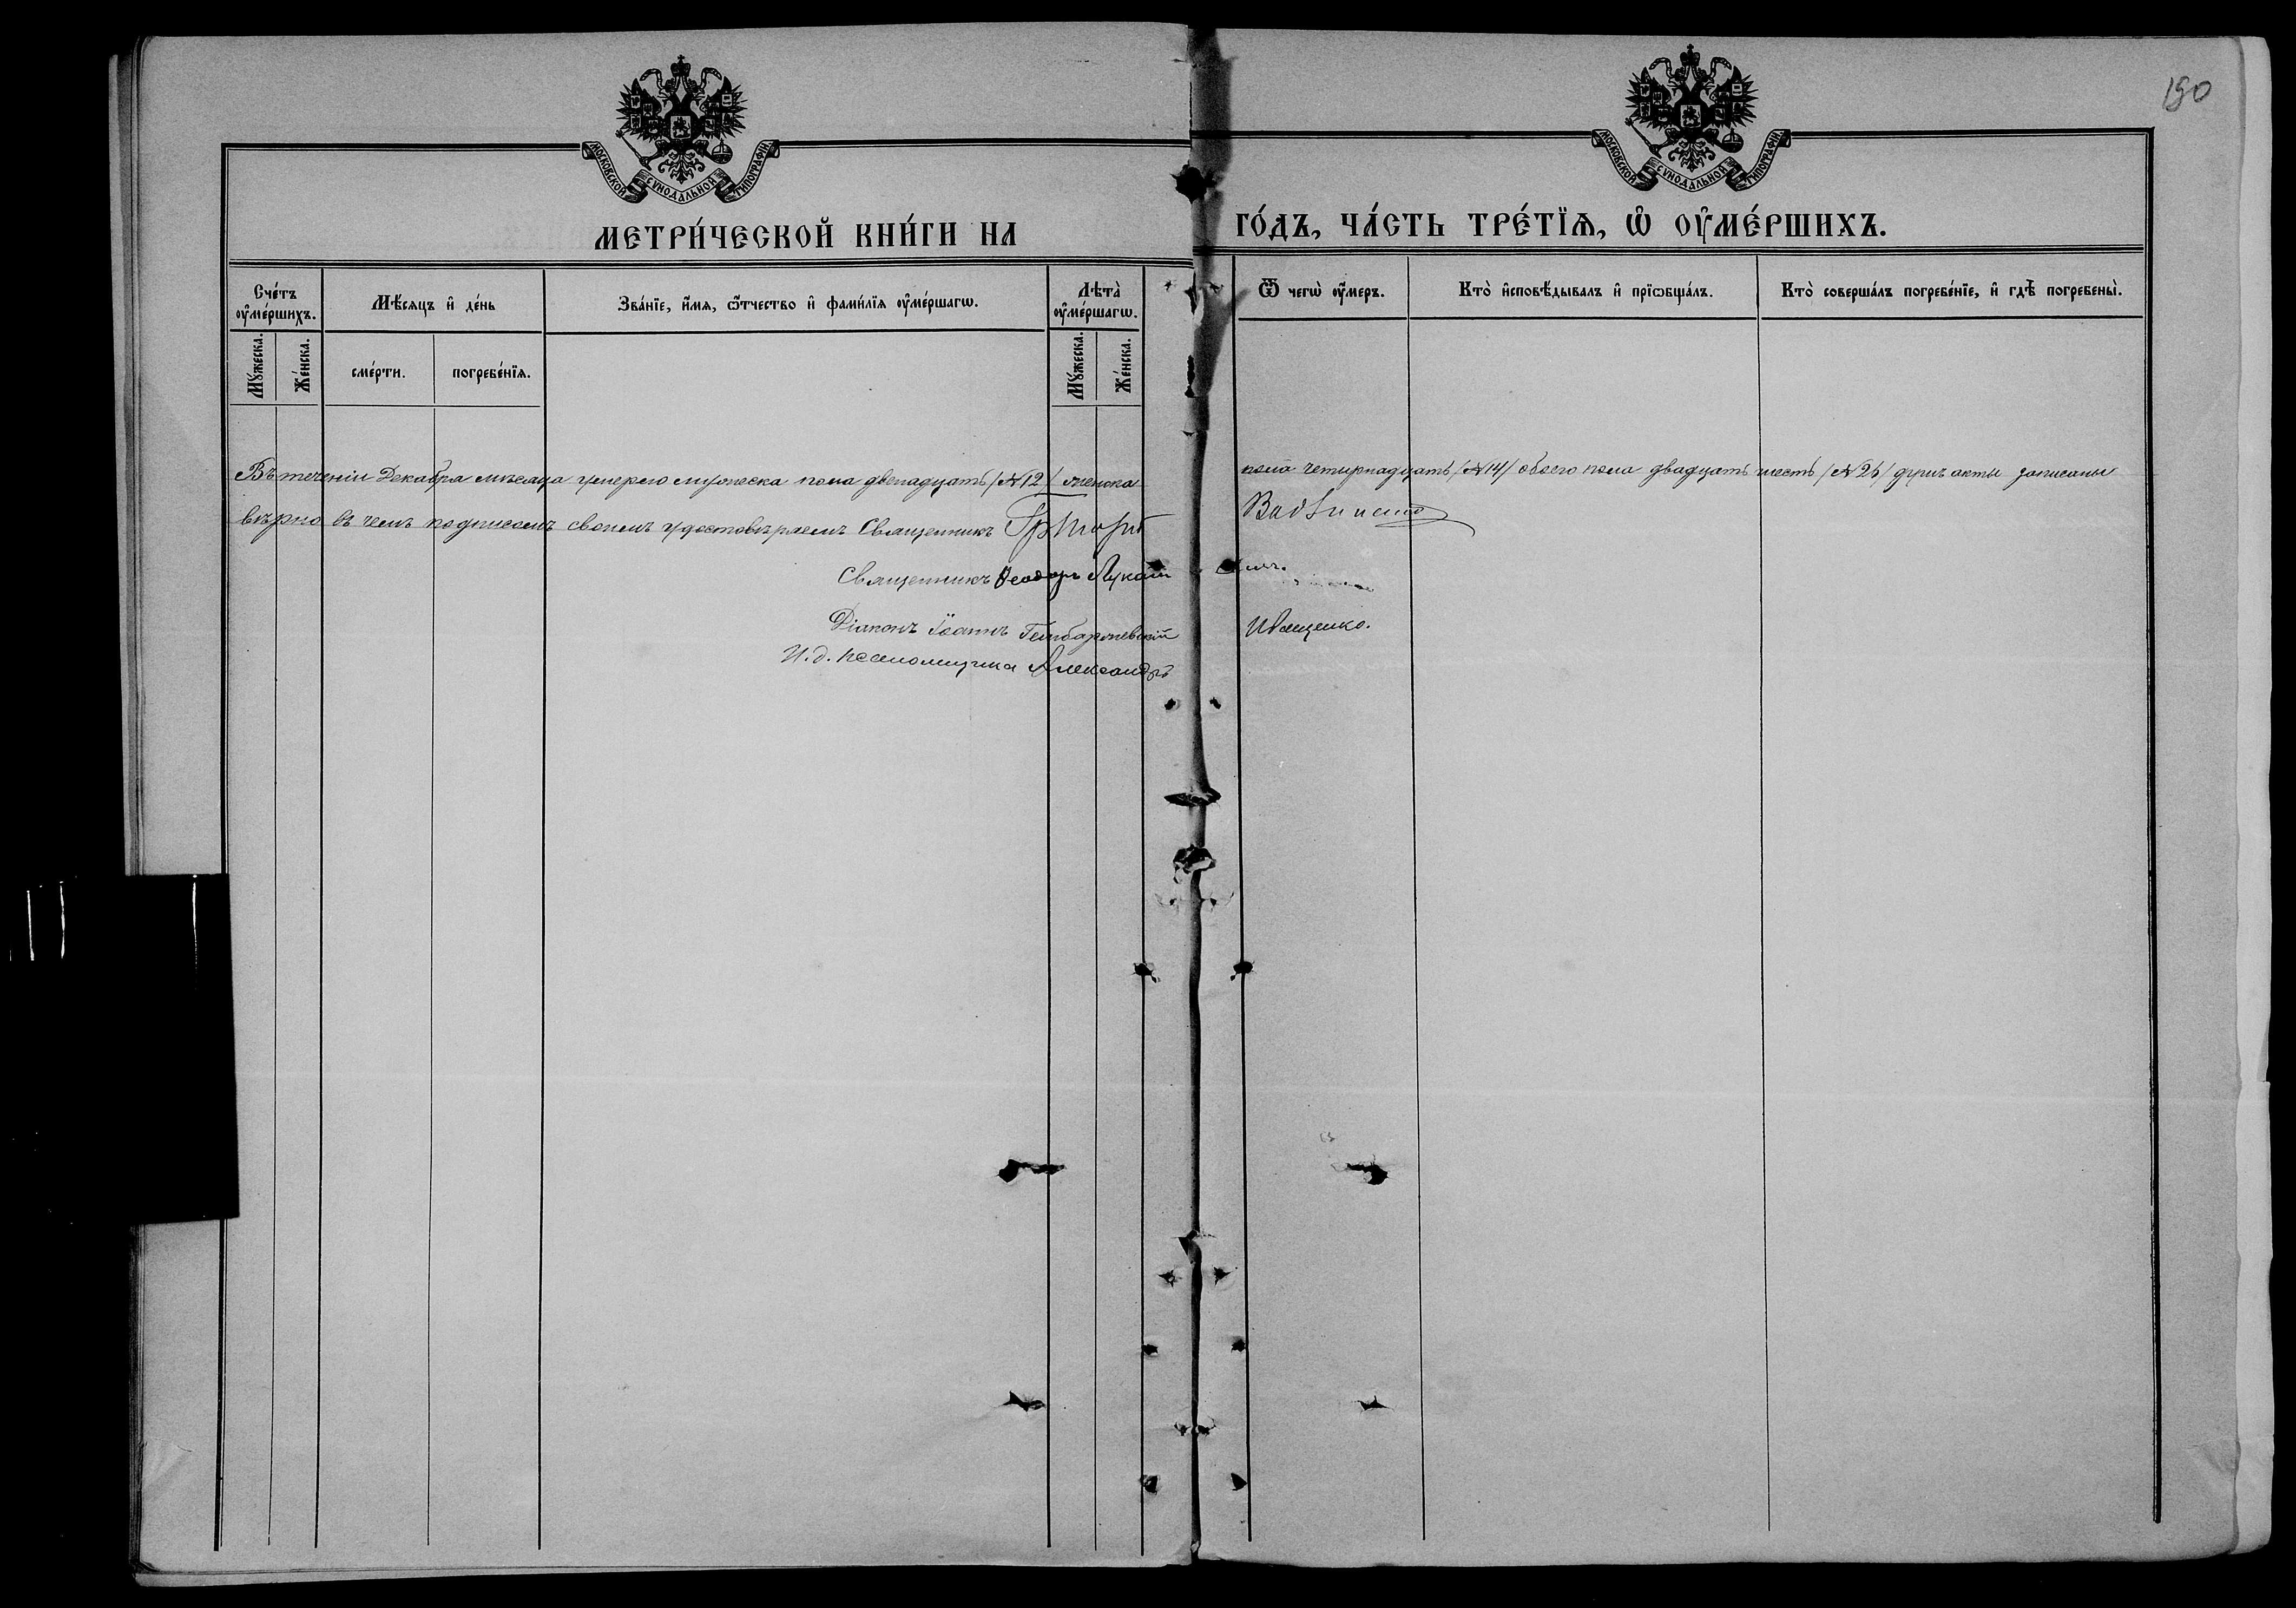 190
МОСКОВСКОЙ СѴНОДАЛЬНОЙ ТИПОГРАФІИ
МОСКОВСКОЙ СѴНОДАЛЬНОЙ ТИПОГРАФІИ
МЕТРИ́ЧЕСКОЙ КНИ́ГИ НА ГО́ДЪ, ЧА́СТЬ ТРЕ́ТЇѦ, Ѡ҆ ОУ҆МЕ́РШИХЪ.
Сче́тъ оу҆ме́ршихъ.
Мꙋ́жеска.
Же́нска.
Мѣ́сяцъ и҆ де́нь
сме́рти.
погребе́нїя.
Зва́нїе, и҆́мя, ѻ҆́тчество и҆ фами́лїя оу҆ме́ршагѡ.
Лѣта̀ оу҆ме́ршагѡ.
Мꙋ́жеска.
Же́нска.
Ѿ чегѡ̀ оу҆́меръ.
Кто̀ и҆сповѣ́дывалъ и҆ прїѡбща́лъ.
Кто̀ соверша́лъ погребе́нїе, и҆ гдѣ̀ погребены̀.
Въ теченіи Декабря мѣсяца умерло мужеска пола двенадцать /№ 12/ женска пола четырнадцать /№ 14/ обоего пола двадцать шесть /№ 26/ душъ акты записаны
вѣрно въ чемъ подписомъ своимъ удостовѣряемъ Священникъ
Священникъ Ѳеодоръ
Діаконъ Іоаннъ
И. д. псаломщика Александръ Иващенко.